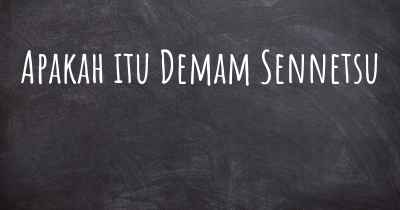 Apakah itu Demam Sennetsu